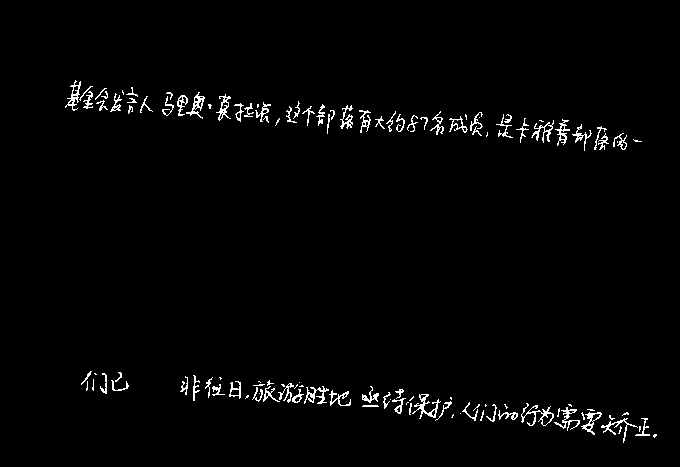 基金会发言人马里奥·莫拉说,这个部落有大约87名成员,是卡雅普部落的一
们已 非往日,旅游胜地亟待保护,人们的行为需要矫正.